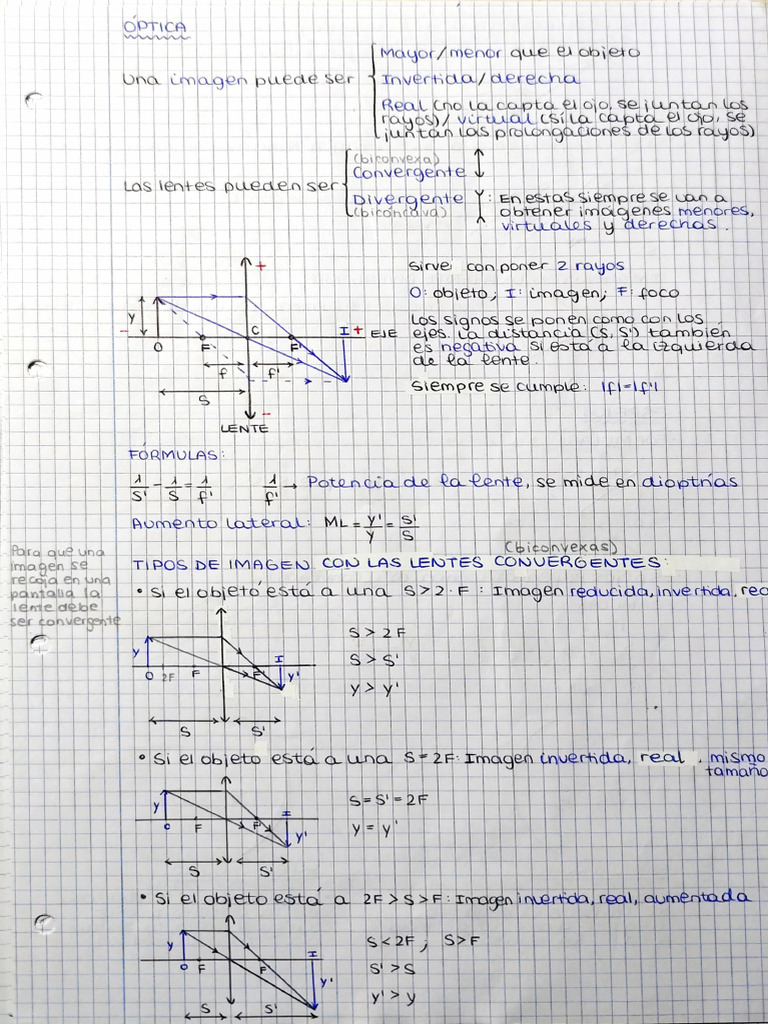 ÓPTICA
Mayor/menor que el objeto
Una imagen puede ser
Invertida/derecha
Real (no la capta el ojo, se juntan los
rayos)/ virtual (sí la capta el ojo, se
juntan las prolongaciones de los rayos)
(biconvexa)
Convergente
Las lentes pueden ser
Divergente : En estas siempre se van a
(bicóncava) obtener imágenes menores,
virtuales y derechas.
Sirve con poner 2 rayos
O: objeto; I: imagen; F: foco
Los signos se ponen como con los
ejes. La distancia (S, S') también
es negativa si está a la izquierda
de la lente.
Siempre se cumple: |f|=|f'|
+
y
-
O
F
C
F'
I
+
EJE
f
f'
S
-
LENTE
FÓRMULAS:
1/S' - 1/S = 1/f' 1/f' → Potencia de la lente, se mide en dioptrías
Aumento lateral: ML = y'/y = S'/S
Para que una
imagen se
recoja en una
pantalla la
lente debe
ser convergente
(biconvexas)
TIPOS DE IMAGEN CON LAS LENTES CONVERGENTES:
• Si el objeto está a una S > 2·F: Imagen reducida, invertida, rea
y
O 2F F F' I y'
S S'
S > 2F
S > S'
y > y'
• Si el objeto está a una S = 2F: Imagen invertida, real, mismo
tamaño
y
O F F' I y'
S S'
S = S' = 2F
y = y'
• Si el objeto está a 2F > S > F: Imagen invertida, real, aumentada
y
O F F I y'
S S'
S < 2F; S > F
S' > S
y' > y